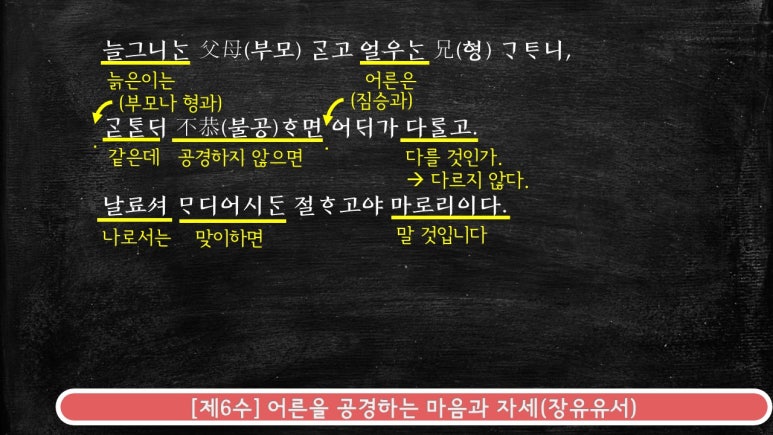 늘그니ᄂᆞᆫ 父母(부모) ᄀᆞᆮ고 얼우ᄂᆞᆫ 兄(형) ᄀᆞᄐᆞ니,
늙은이는 어른은
(부모나 형과) (짐승과)
ᄀᆞᆮᄐᆞᆫᄃᆡ 不恭(불공)ᄒᆞ면 어ᄃᆡ가 다ᄅᆞᆯ고.
같은데 공경하지 않으면 다를 것인가.
→ 다르지 않다.
날료셔 ᄆᆞ디어시ᄃᆞᆫ 절ᄒᆞ고야 마로리이다.
나로서는 맞이하면 말 것입니다
[제6수] 어른을 공경하는 마음과 자세(장유유서)